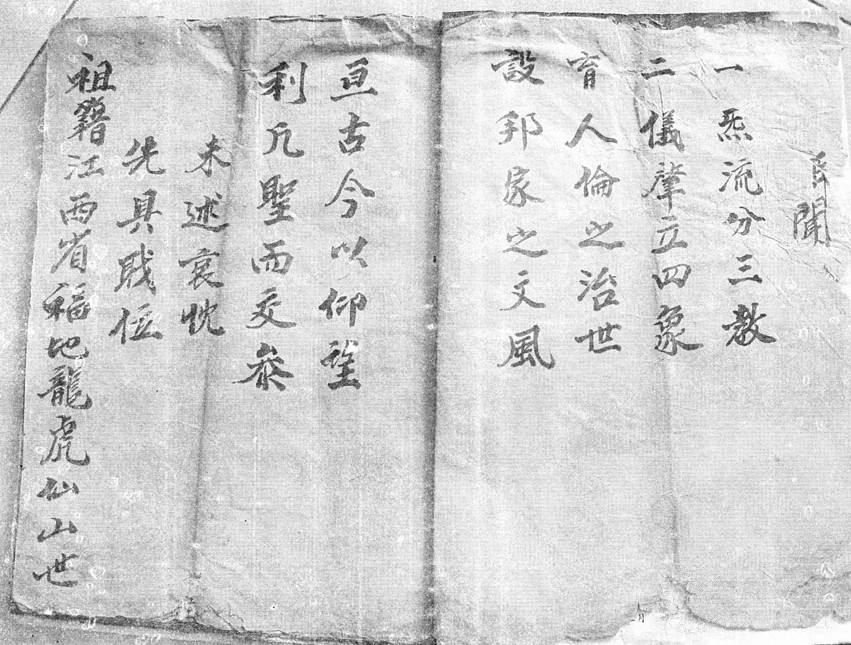 聞
一炁流分三教
二儀肇立四象
育人倫之治世
設邦家之文風
亘古今以仰望
利凢聖而交參
未述衷忱
先具賎位
祖籍江西省福地龍虎仙山世